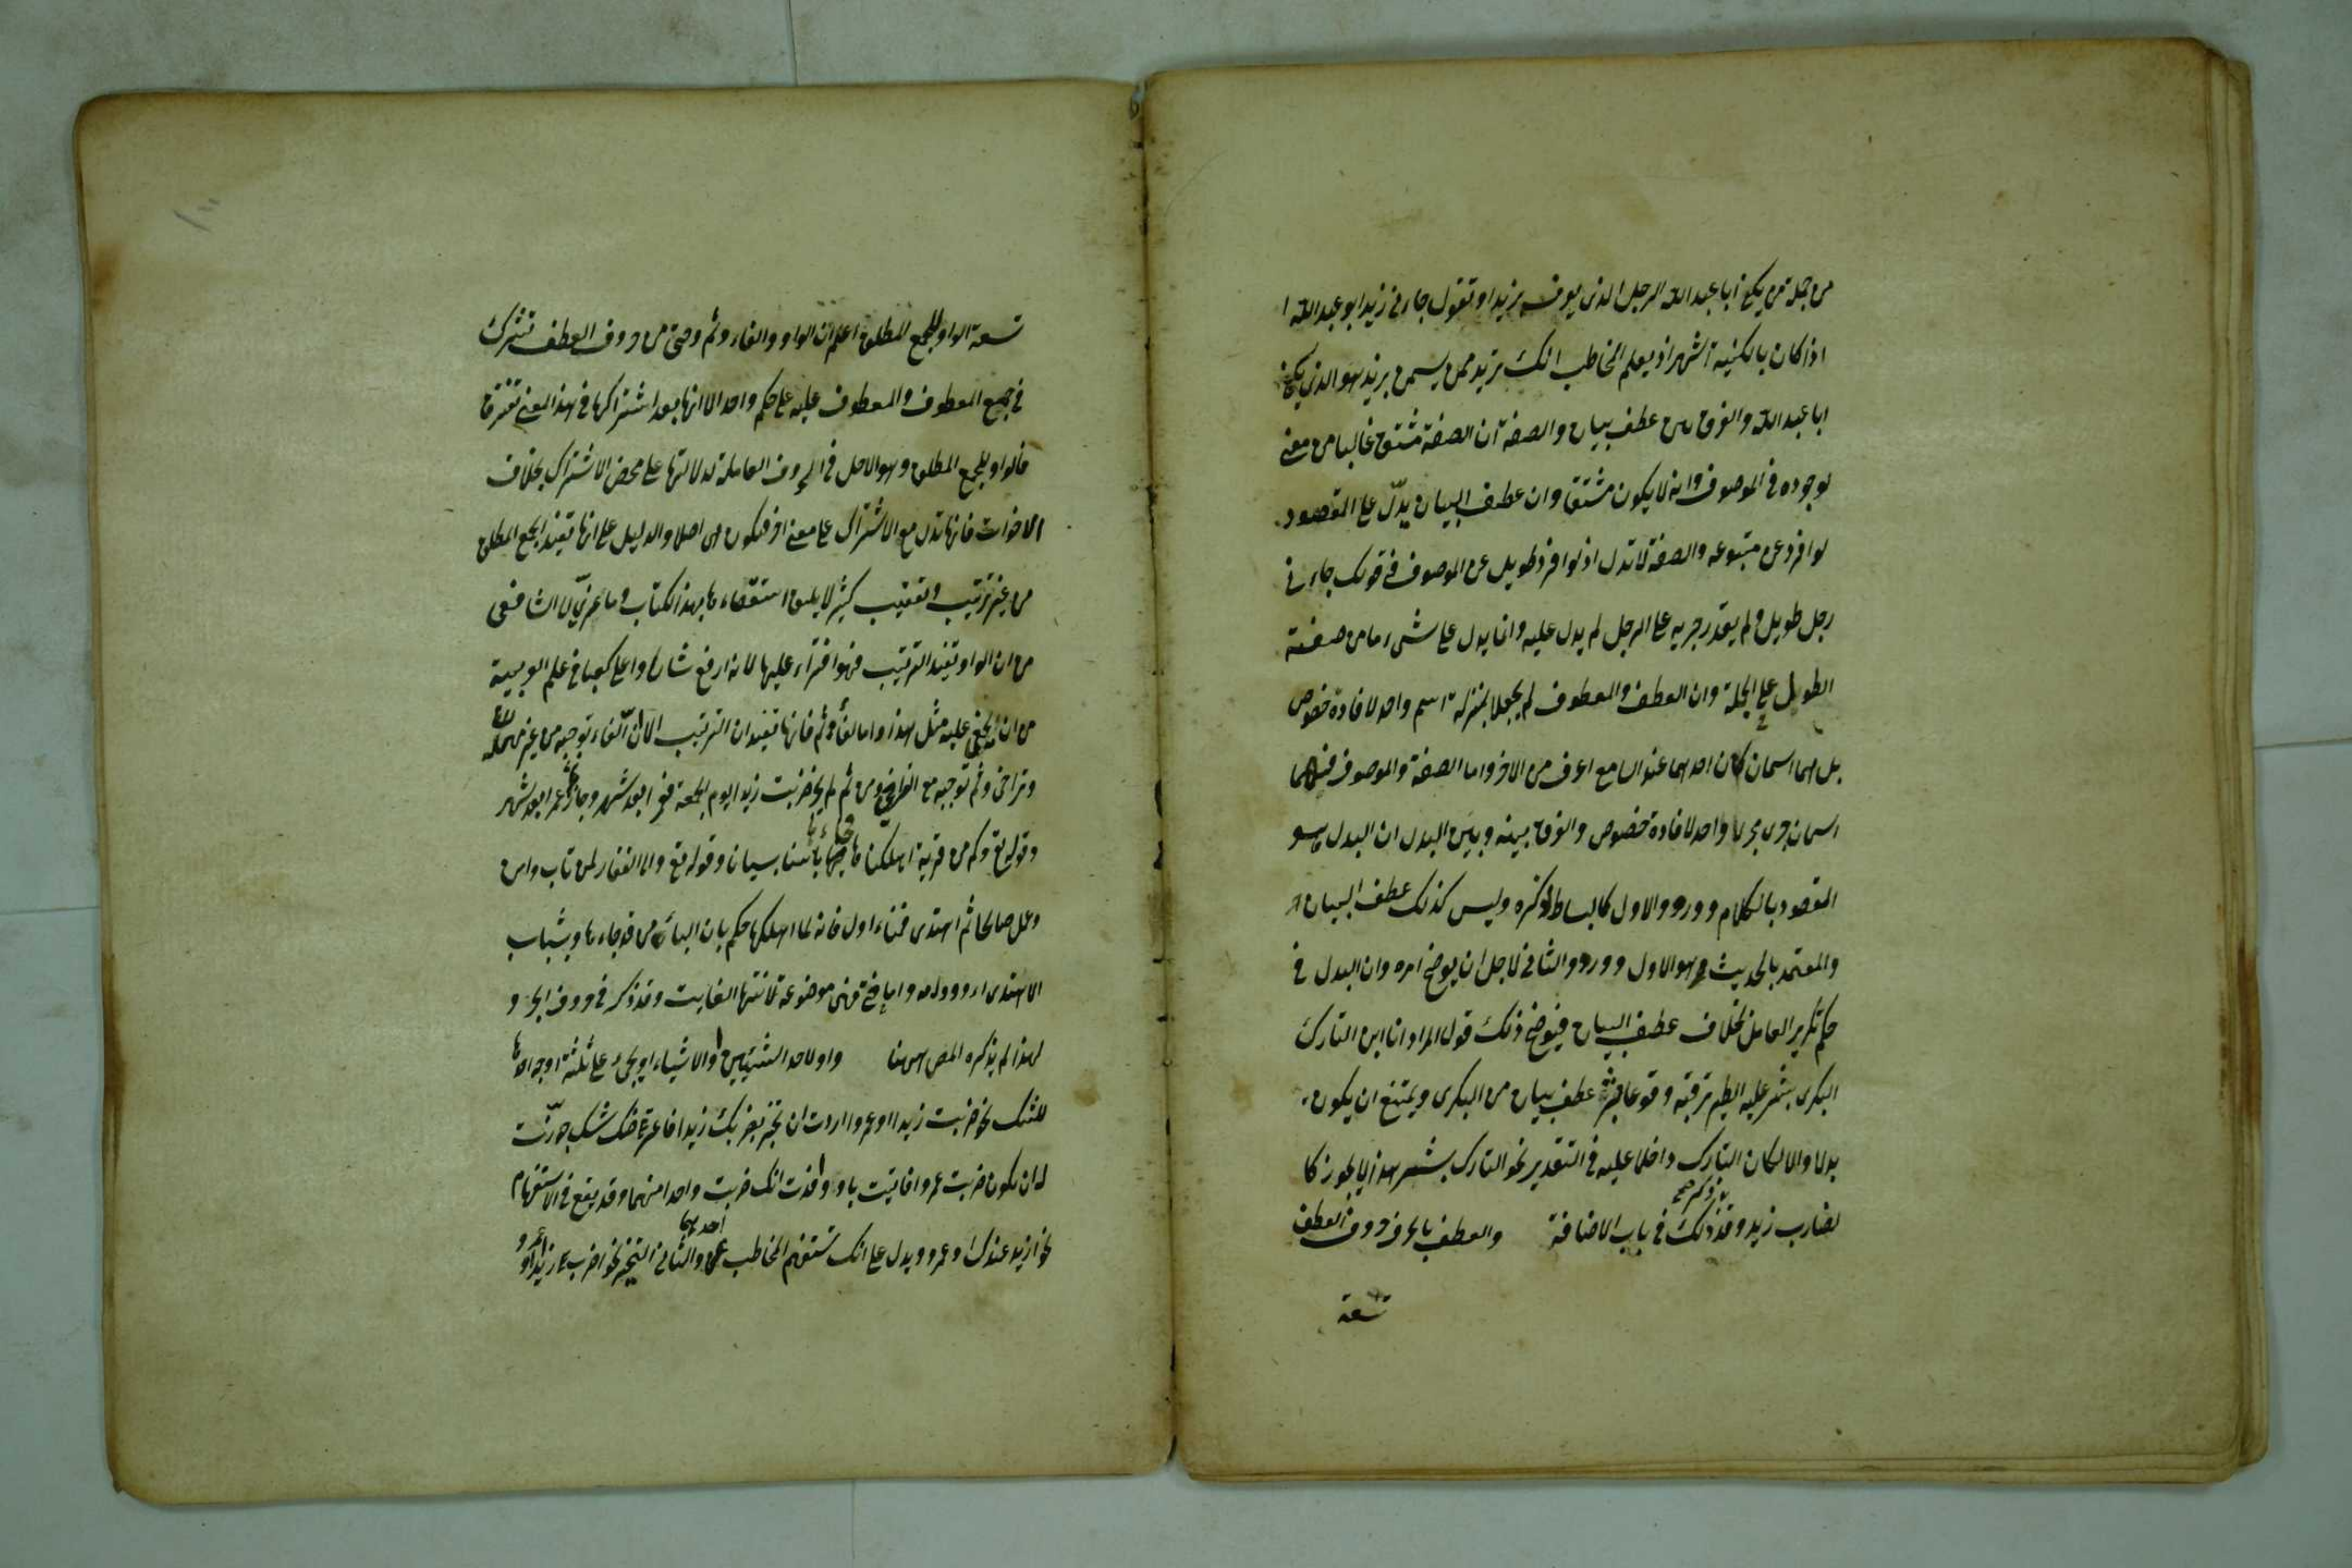 من جملة من يكنى ابا عبد الله الرجل الذي يعرف بزيد او تقول جاءنى زيد ابو عبد الله
اذا كان بالكنية اشهر اذ يعلم المخاطب انك تريد ممن يسمى بزيد هو الذي يكنى
ابا عبد الله والفرق بين عطف بيان والصفة ان الصفة مشتق غالبا من معنى
يوجوده في الموصوف وانه لا يكون مشتقا وان عطف البيان يدلّ على المقصود
لو افرد عن متبوعه والصفة لا تدل اذ لو افرد طويل عن الموصوف في قولك جاءنى
رجل طويل ولم يقدر جريه على الرجل لم يدل عليه وانما يدل على شىء ما من صفته
الطول على الجملة وان العطف والمعطوف لم يجعلا بمنزلة اسم واحد لافادة خصوص
بل هما اسمان كان احدهما عند السامع اعرف من الاخر واما الصفة والموصوف فهما
اسمان جرى مجرى واحد لافادة خصوص والفرق بينه وبين البدل ان البدل هو
المقصود بالكلام وورود الاول كالبساط لذكره وليس كذلك عطف البيان
والمعتمد بالحديث وهو الاول وورود الثاني لاجل ان يوضح امره وان البدل في
حكم تكرير العامل بخلاف عطف البيان فيوضح ذلك قول المراد انا ابن التارك
البكرى بشر عليه الطير ترقبه وقوعا فبشر عطف بيان من البكرى ويمتنع ان يكون
بدلا والا لكان التارك داخلا عليه في التقدير نحو التارك بشر هذا لا يجوز كا
لضارب زيد وقد ذكر ذلك في باب الاضافة والعطف بالحرف وحروف العطف
تسعة
تسعة الواو للجمع المطلق اعلم ان الواو والفاء وثم وحتى من حروف العطف تشترك
في جميع المعطوف والمعطوف عليه على حكم واحد الا انها بعد اشتراكها في هذا المعنى تفترقا
فالواو للجمع المطلق وهو الاصل في الحروف العاملة لدلالتها على محض الاشتراك بخلاف
الاخوات فانها تدل مع الاشتراك على معنى اخر فتكون هى اصلا والدليل على انها تفيد الجمع المطلق
من غير ترتيب وتعقيب كثير لا يليق استقصاءها بهذا الكتاب وما عزى الى الشافعى
من ان الواو يفيد الترتيب فهو افتراء عليها لانه ارفع شانا واعلى كعبا في علم العربية
من ان يخفى عليه مثل هذا واما الفاء وثم فانها تفيدان الترتيب الا ان الفاء توجبه من غير مهملة
وتراخى وثم توجبه مع التراخى ومن ثم لم يجز ضربت زيدا يوم الجمعة فعمرا بعد شهر وجاز ثم عمرا بعد شهر
وقوله تع وكم من قرية اهلكناها فجاءها باسنا بيانا وقوله تع وانى لغفار لمن تاب وامن
وعمل صالحا ثم اهتدى فمتاول فانه لما اهلكها حكم بان الباس قد جاءها وبثبات
الاهتداء ودوامه واما حتى فهى موضوعة لانتهاء الغاية وقد ذكر في حروف الجر و
لهذا لم يذكره المص ههنا واو لاحد الشيئين او الاشياء او يجىء على ثلثة اوجه احدها
للشك نحو ضربت زيدا او عمروا اردت ان تخبر بضربك زيدا فاعترضك شك جوزت
ان تكون ضربت عمروا فاتيت باو وافدت انك ضربت واحدا منهما وقد يقع في الاستفهام
نحو ازيد عندك او عمرو ويدل على انك تستفهم المخاطب عن احدهما والثانى التخيير نحو اضرب زيدا او عمروا